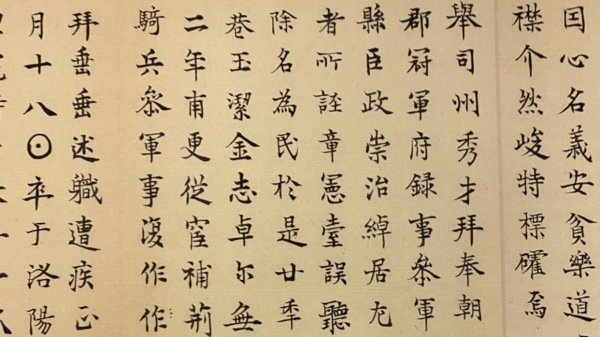 囙心名義安貧樂道
襟介然峻特標礭焉
舉司州秀才拜奉朝
郡冠軍府録事叅軍
縣臣政崇治綽居尤
者所誣章憲臺誤聽
除名為民於是廿秊
巷玉潔金志卓尔無
二年甫更從宦補荊
騎兵叅軍事復作作
拜垂垂述職遭疾正
月十八⊙卒于洛陽